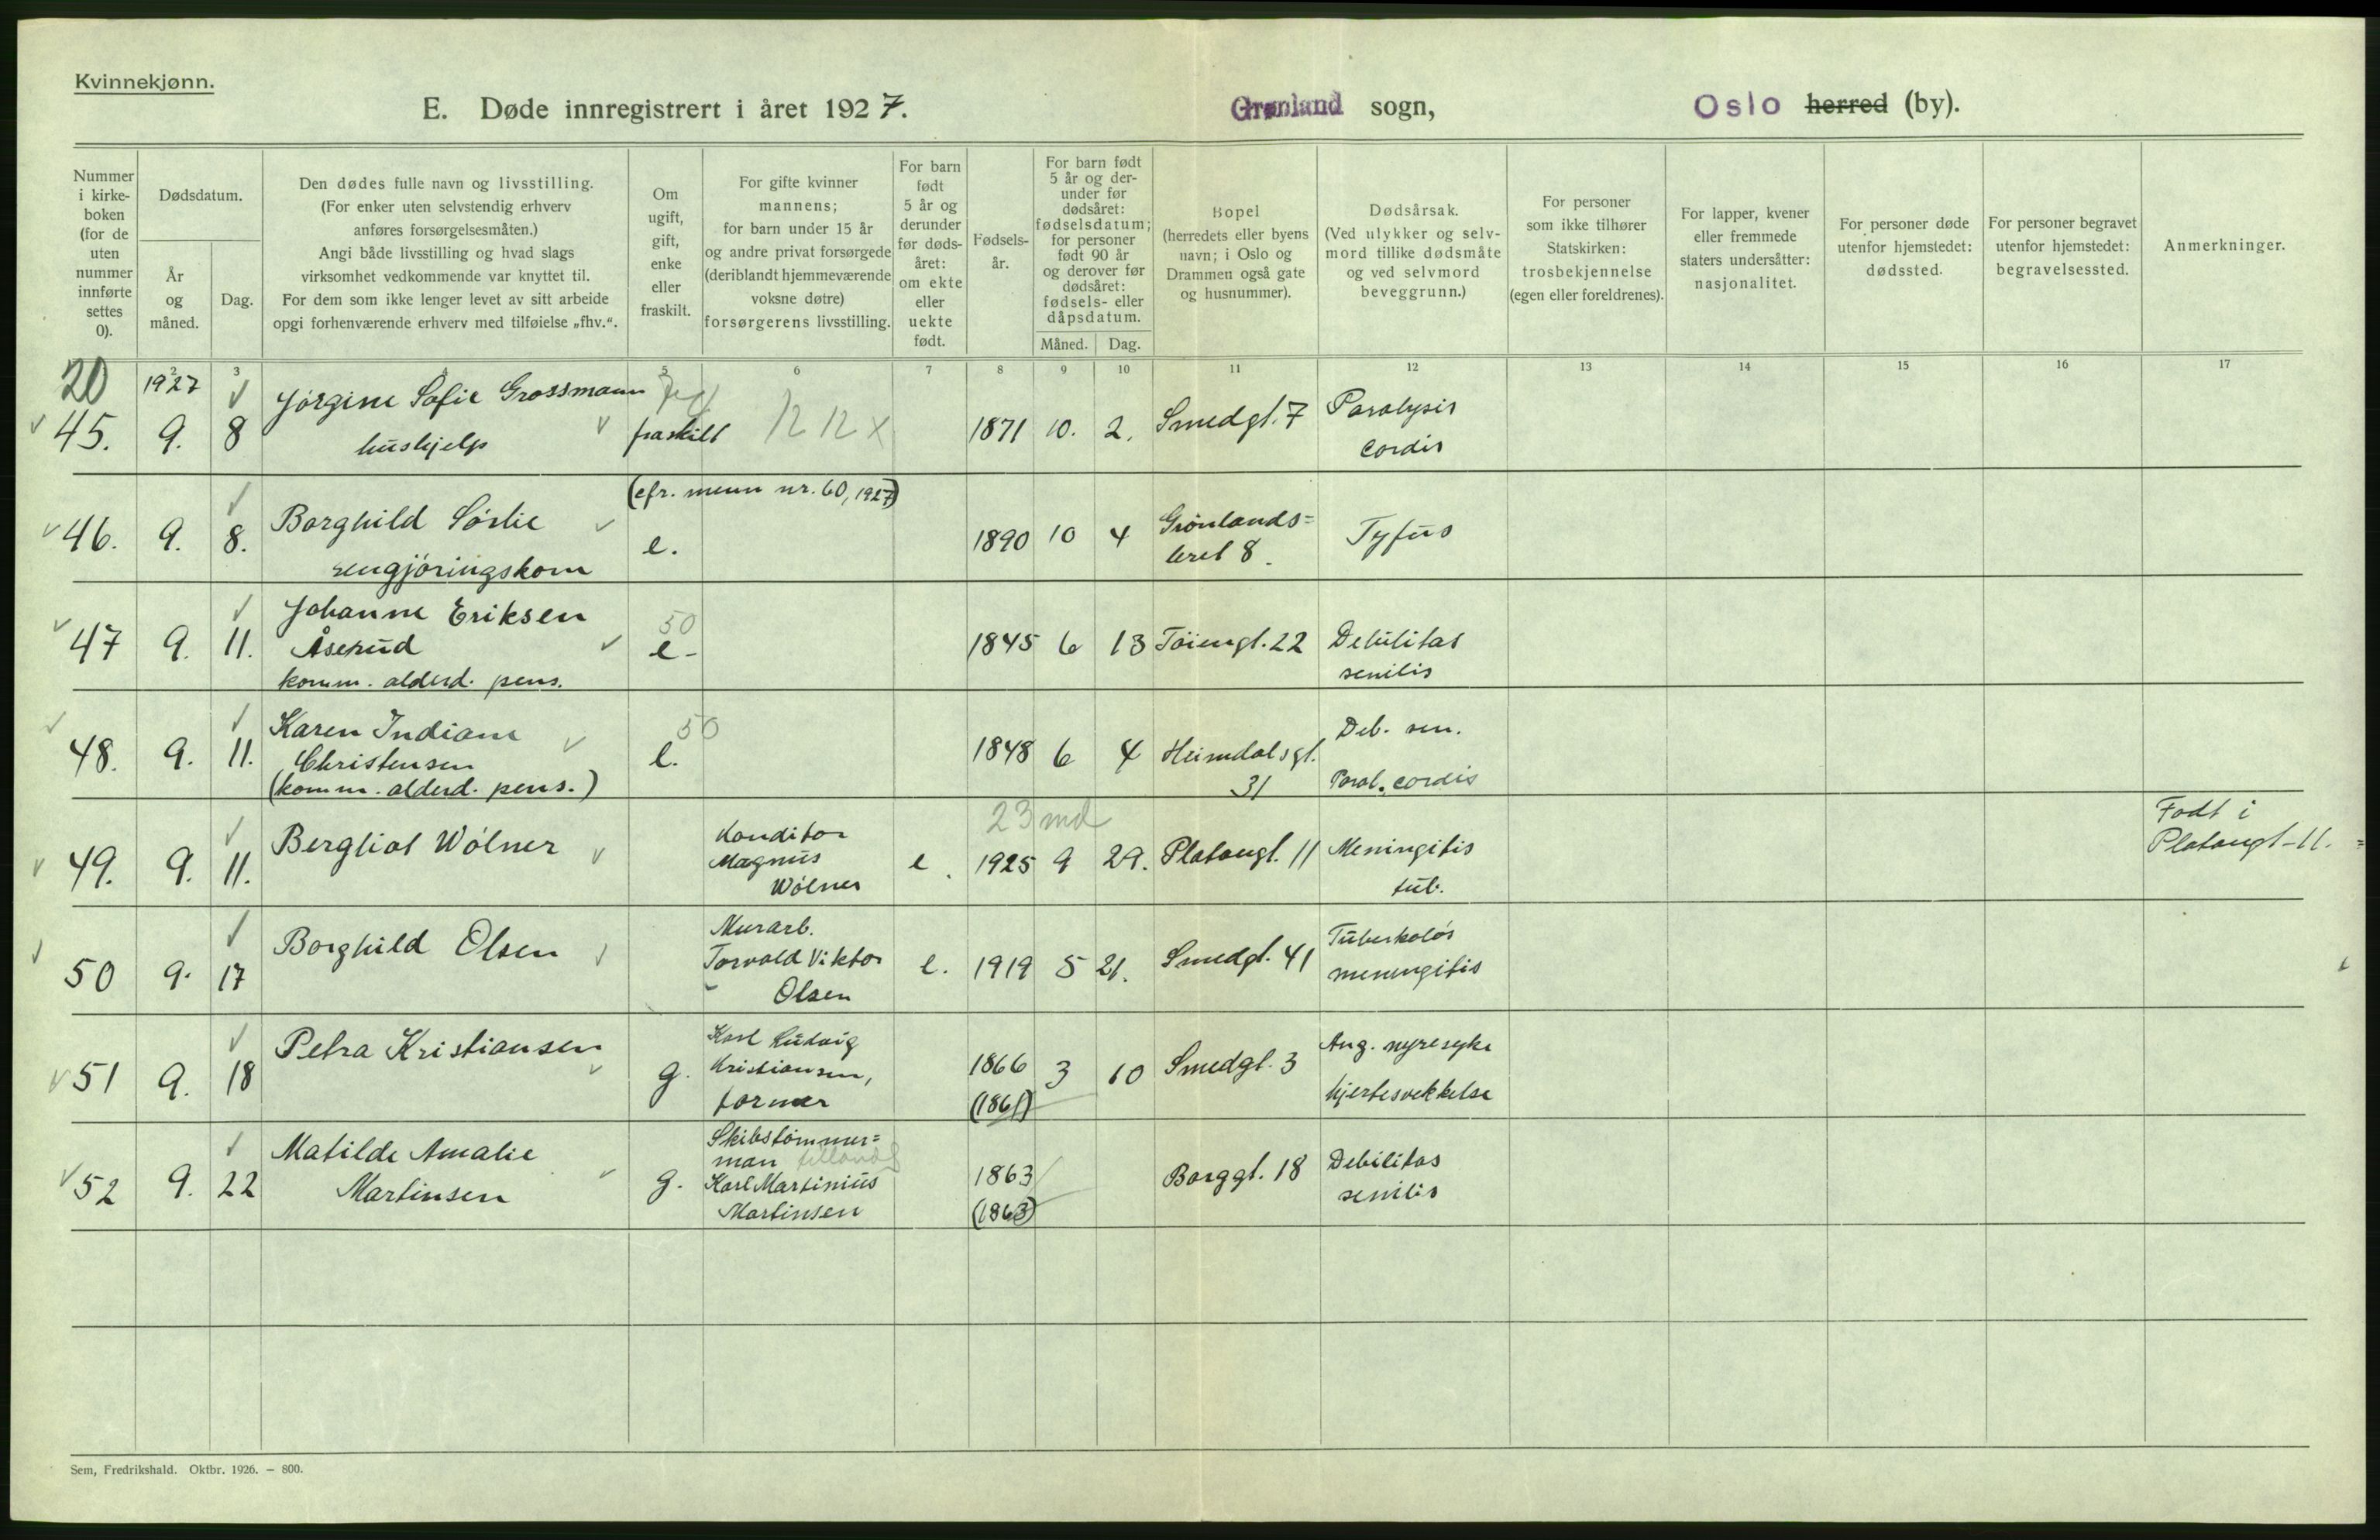 Kvinnekjønn.
E. Døde innregistrert i året 1927.
Grønland sogn,
Oslo herred (by).
Nummer i kirke-boken (for de uten nummer innførte settes 0).
Dødsdatum.
År og måned.
Dag.
Den dødes fulle navn og livsstilling.
(For enker uten selvstendig erhverv anføres forsørgelsesmåten.)
Angi både livsstilling og hvad slags virksomhet vedkommende var knyttet til.
For dem som ikke lenger levet av sitt arbeide opgi forhenværende erhverv med tilføielse „fhv.“.
Om ugift, gift, enke eller fraskilt.
For gifte kvinner mannens; for barn under 15 år og andre privat forsørgede (deriblandt hjemmeværende voksne døtre) forsørgerens livsstilling.
For barn født 5 år og derunder før døds-året: om ekte eller uekte født.
Fødsels-år.
For barn født 5 år og der-under før dødsåret: fødselsdatum; for personer født 90 år og derover før dødsåret: fødsels- eller dåpsdatum.
Måned.
Dag.
Bopel (herredets eller byens navn; i Oslo og Drammen også gate og husnummer).
Dødsårsak.
(Ved ulykker og selv-mord tillike dødsmåte og ved selvmord beveggrunn.)
For personer som ikke tilhører Statskirken: trosbekjennelse (egen eller foreldrenes).
For lapper, kvener eller fremmede staters undersåtter: nasjonalitet.
For personer døde utenfor hjemstedet: dødssted.
For personer begravet utenfor hjemstedet: begravelsessted.
Anmerkninger.
2 3 4 5 6 7 8 9 10 11 12 13 14 15 16 17
20 1927
45. 9. 8 Jörgine Sofie Grossmann hushjelp fraskilt 12 12 x 1871 10. 2. Smedgt. 7 Paralysis cordis
(cfr. menn nr. 60, 1927)
46. 9. 8. Borghild Sörlie rengjöringskom e. 1890 10 4 Grönlands= leret 8. Tyfus
47 9. 11. Johanne Eriksen Åserud komm. alderd. pens. 50 e- 1845 6 13 Töiengt. 22 Debilitas senilis
48. 9. 11. Karen Indiane Christensen (komm. alderd. pens.) 50 e. 1848 6 4 Heimdalsgt. 31 Deb. sen. Paral. cordis
23 md
49. 9. 11. Bergliot Wölner Konditor Magnus Wölner e. 1925 9 29. Platougt. 11 Meningitis tub. Födt i Platougt-11.
50 9. 17 Borghild Olsen Murarb. Torvald Viktor Olsen e. 1919 5 21. Smedgt. 41 Tuberkolös meningitis
51 9. 18 Petra Kristiansen g. Karl Ludvig Kristiansen, former 1866 (1861) 3 10 Smedgt. 3 Ang. nyresyke hjertesvekkelse
52 9. 22 Matilde Amalie Martinsen g. Skibstömmer= man Karl Martinius Martinsen 1863 (1863) Borggt. 18 Debilitas senilis
Sem, Fredrikshald. Oktbr. 1926. – 800.